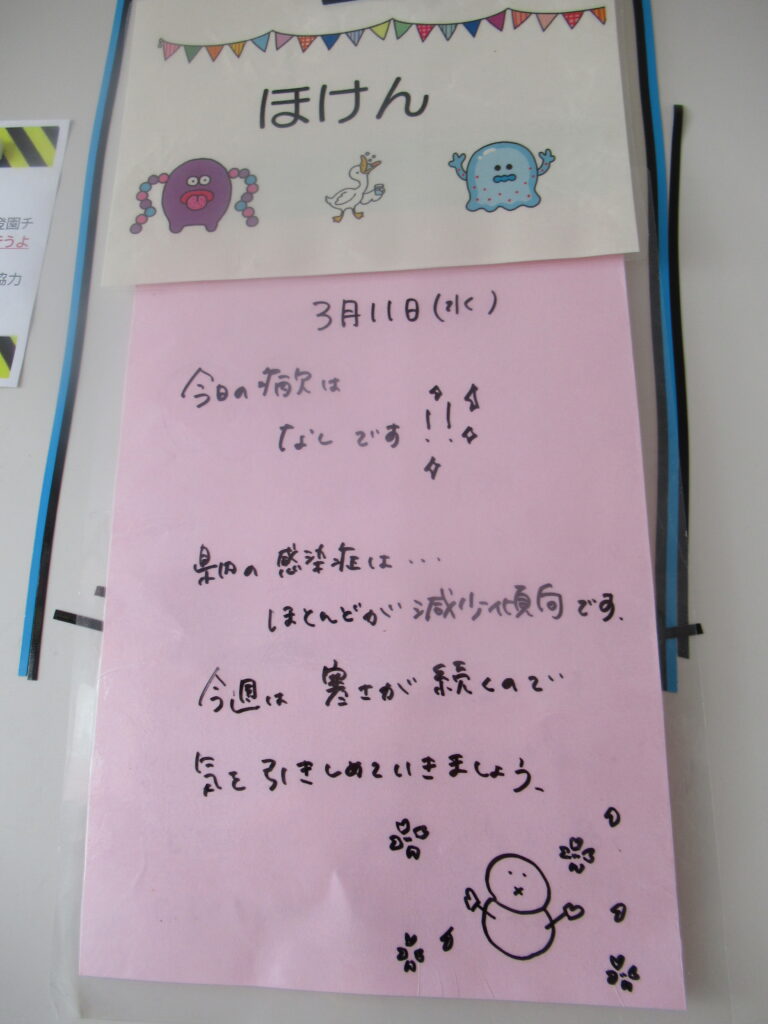 ほけん
3月11日(水)
今日の病欠は
なしです!!
県内の感染症は…
ほとんどが減少傾向です、
今週は寒さが続くので
気を引きしめていきましょう、
登園チ
うよ
協力